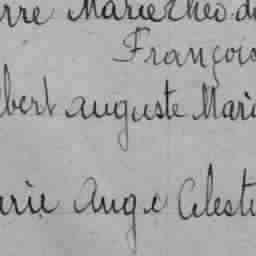 rre Marie Théo d
François
bert auguste Mari
arie Ange Celeste